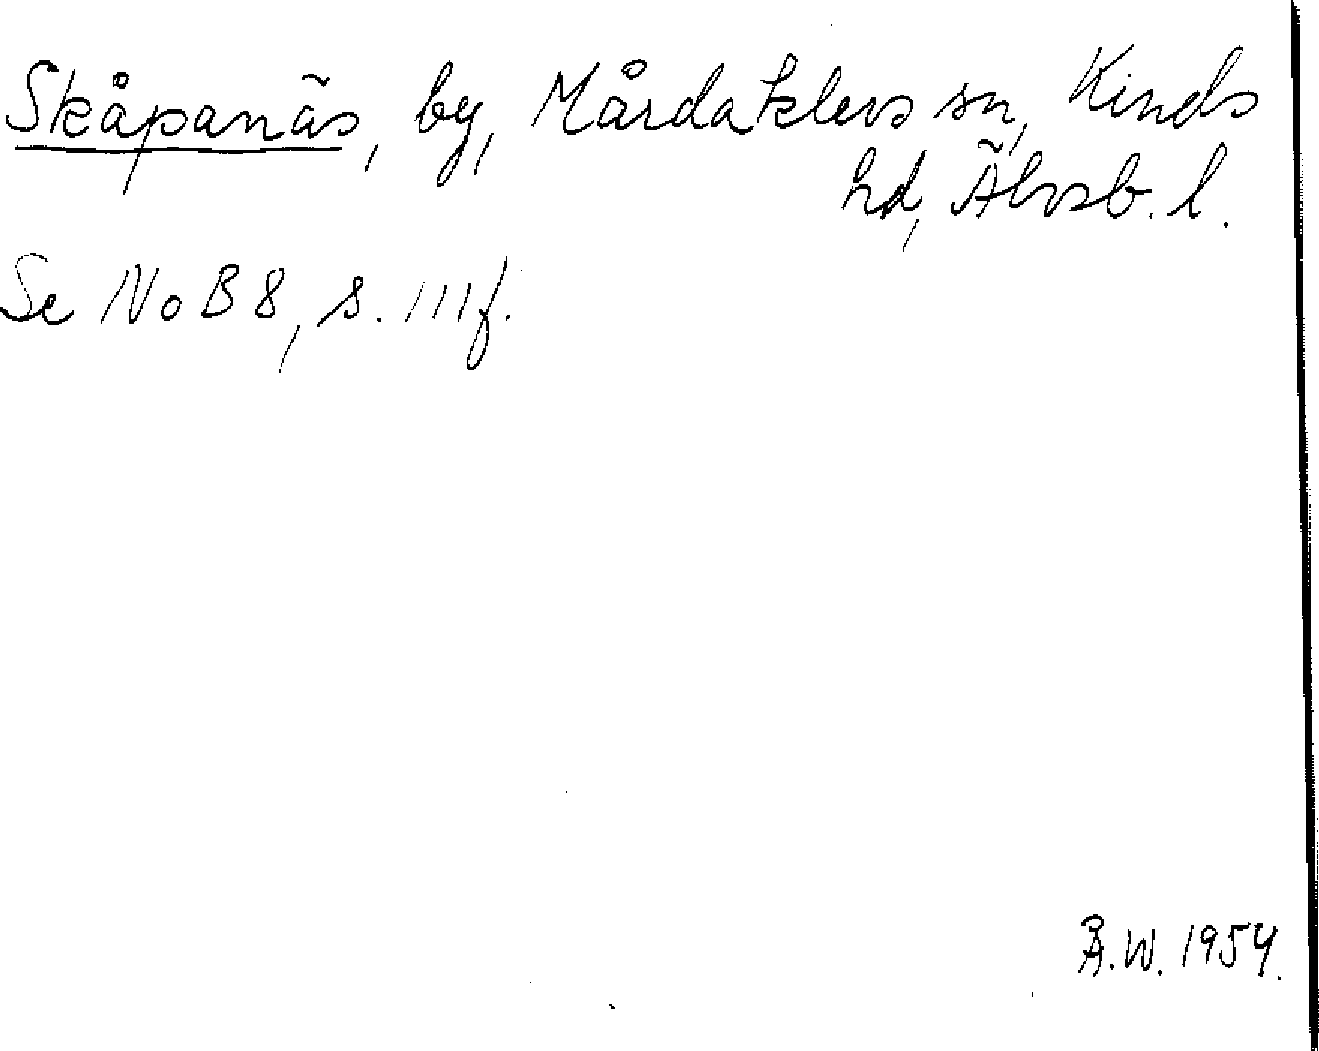 Skåpanäs, by, Mårdaklevs sn, Kinds
hd, Älvsb. l.
Se NoB 8, s. 111 f.
Å.W. 1954.